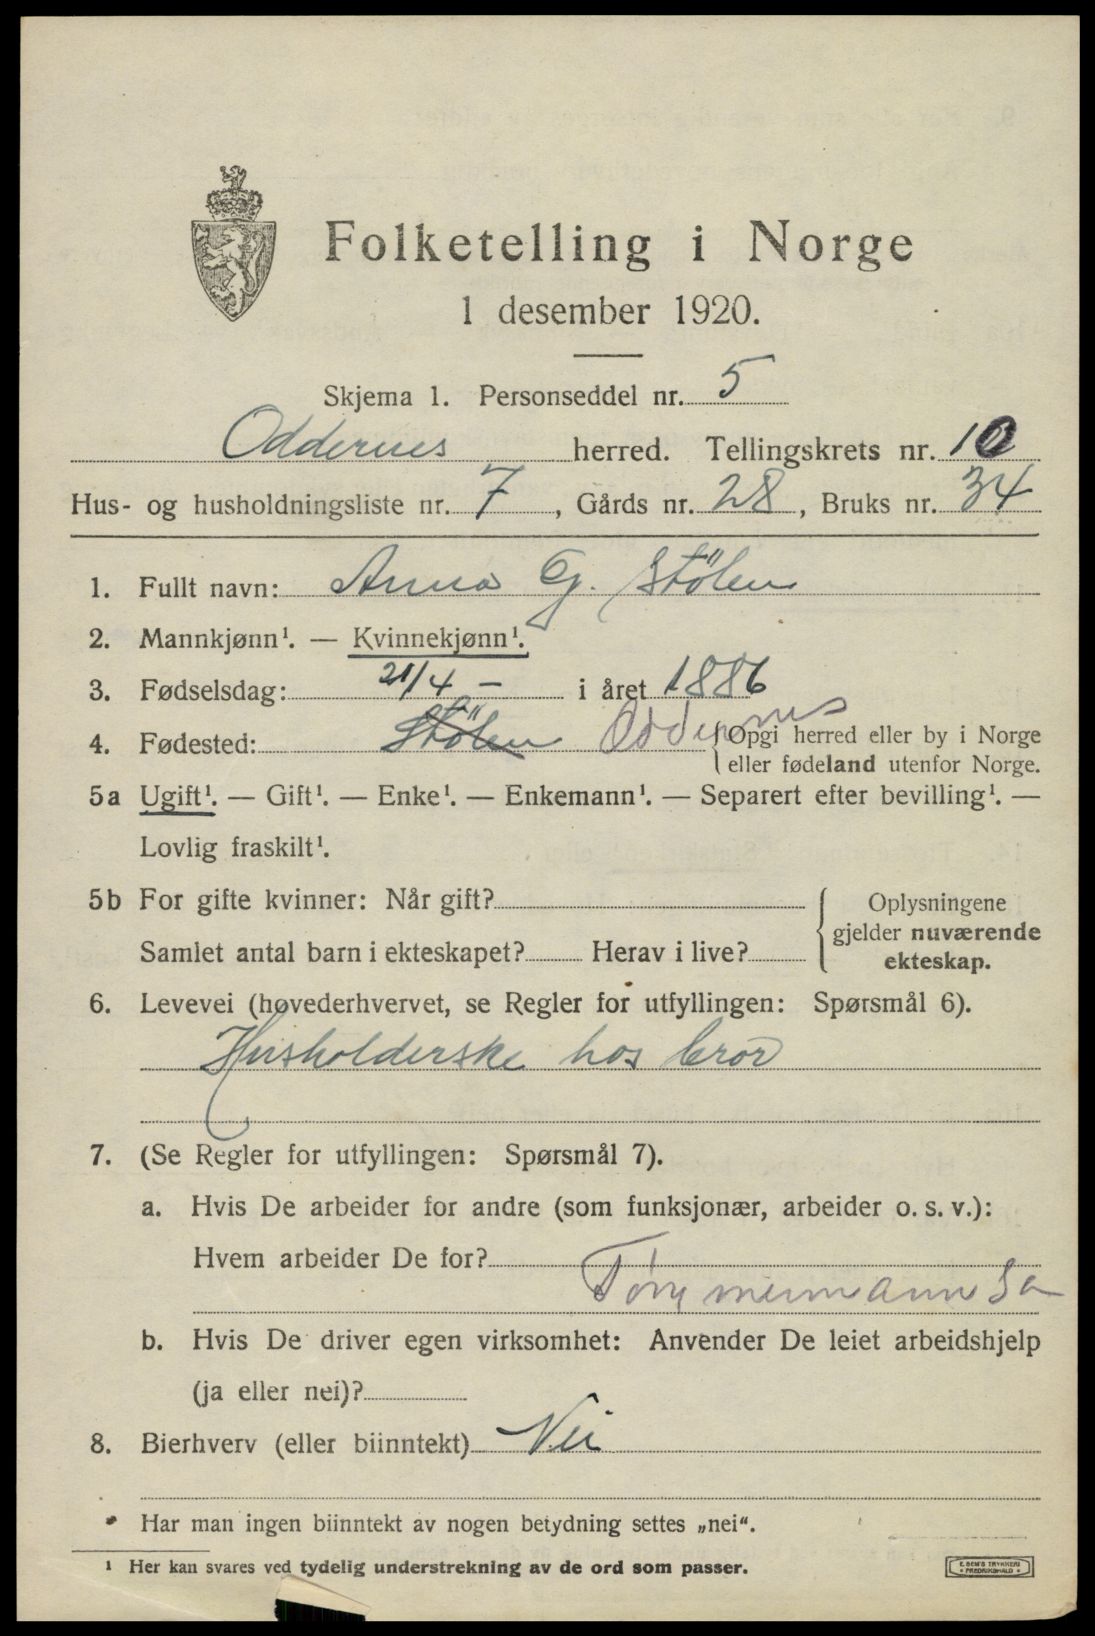 Folketelling i Norge
1 desember 1920.
Skjema 1. Personseddel nr. 5
Oddernes herred. Tellingskrets nr. 10
Hus- og husholdningsliste nr. 7, Gårds nr. 28, Bruks nr. 34
1. Fullt navn: Anna G. Stölen
2. Mannkjønn¹. — Kvinnekjønn¹.
3. Fødselsdag: 21/4 – i året 1886
4. Fødested: Stölen Oddernes {Opgi herred eller by i Norge
eller fødeland utenfor Norge.
5a Ugift¹. — Gift¹. — Enke¹. — Enkemann¹. — Separert efter bevilling¹. —
Lovlig fraskilt¹.
5b For gifte kvinner: Når gift? { Oplysningene
gjelder nuværende
Samlet antal barn i ekteskapet? Herav i live? ekteskap.
6. Levevei (høvederhvervet, se Regler for utfyllingen: Spørsmål 6).
Husholderske hos bror
7. (Se Regler for utfyllingen: Spørsmål 7).
a. Hvis De arbeider for andre (som funksjonær, arbeider o. s. v.):
Hvem arbeider De for?
Tømmermann
b. Hvis De driver egen virksomhet: Anvender De leiet arbeidshjelp
(ja eller nei)?
8. Bierhverv (eller biinntekt) Nei
* Har man ingen biinntekt av nogen betydning settes „nei“.
¹ Her kan svares ved tydelig understrekning av de ord som passer.
E. SEM'S TRYKKERI
FREDRIKSHALD